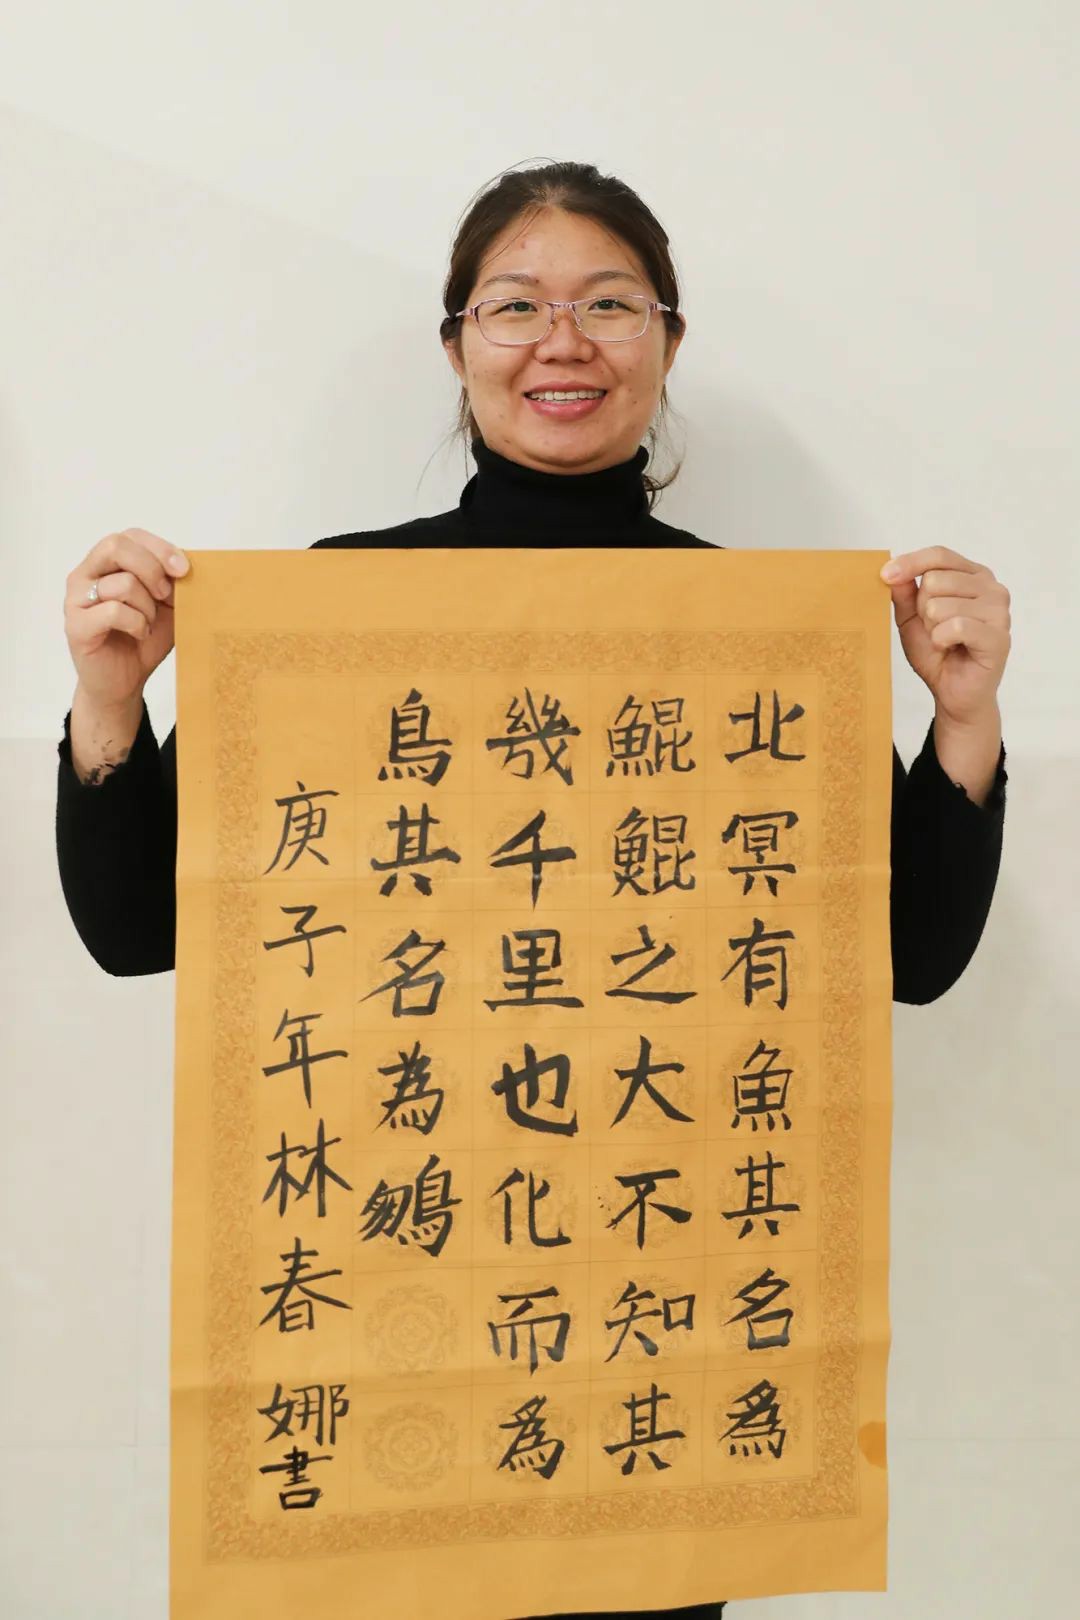 北冥有魚其名爲
鯤鯤之大不知其
幾千里也化而爲
鳥其名為鵬
庚子年林春娜書